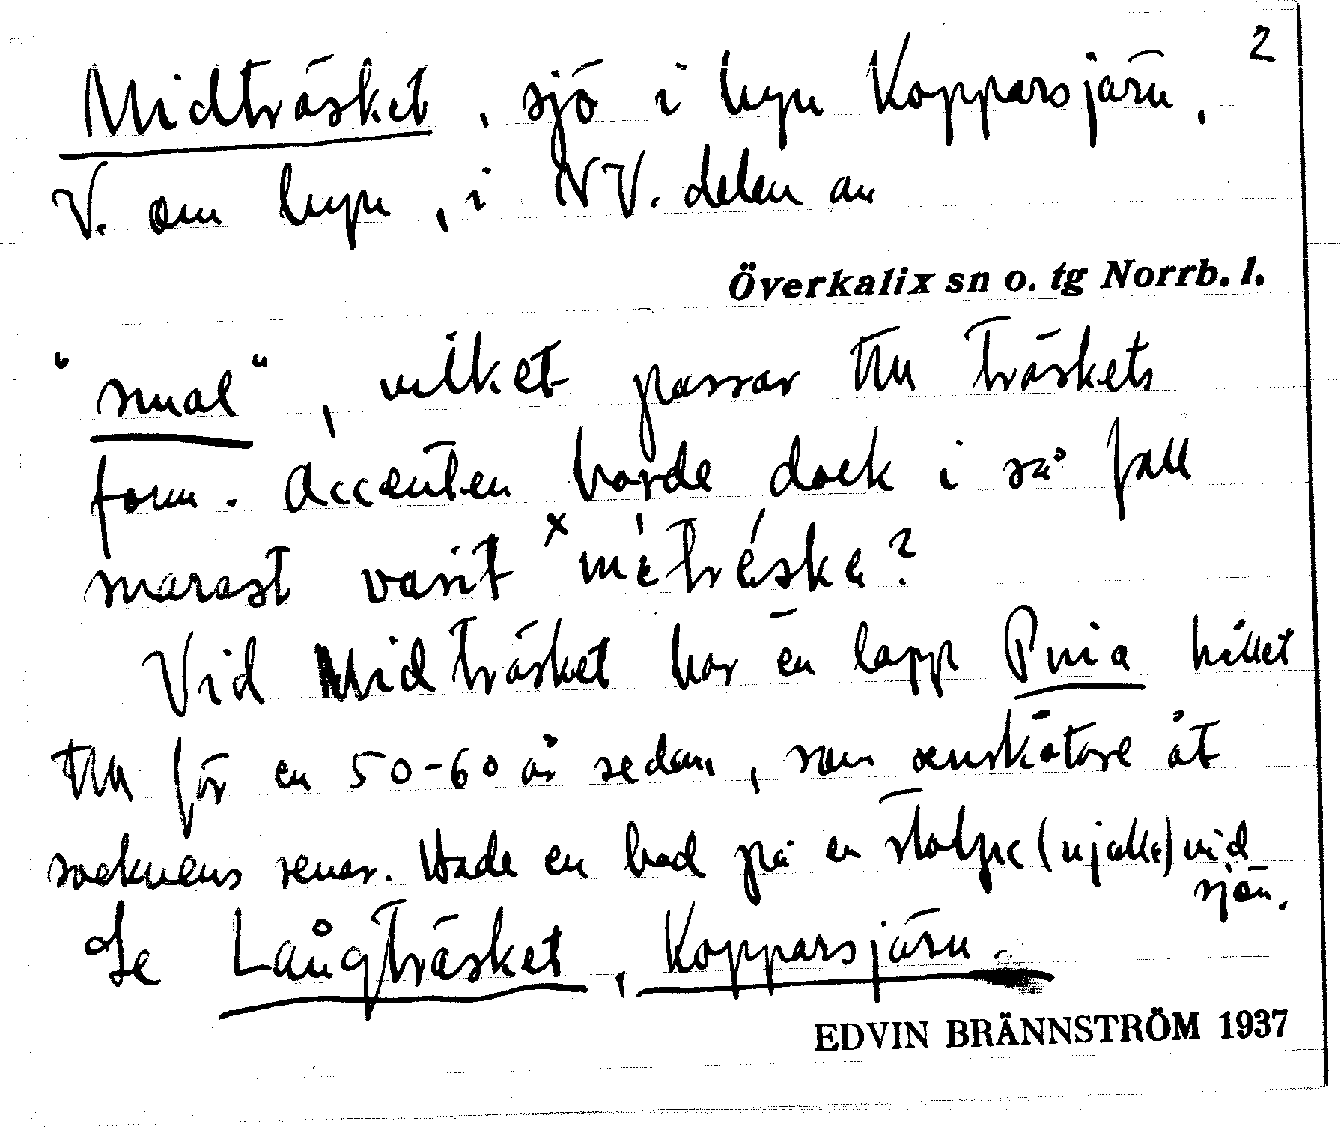 2
Midträsket, sjö i byn Kopparsjärn,
V. om byn, i NV. delen av
Överkalix sn o. tg Norrb. l.
"smal", vilket passar till träskets
form. Accenten borde dock i så fall
narast varit ˣmètréskè?
Vid Midträsket har en lapp Puia hållet
till för en 50-60 år sedan, som renskötare åt
socknens renar. Hade en bod på en stolpe (njalla) vid
sjön.
Se Långträsket, Kopparsjärn.
EDVIN BRÄNNSTRÖM 1937